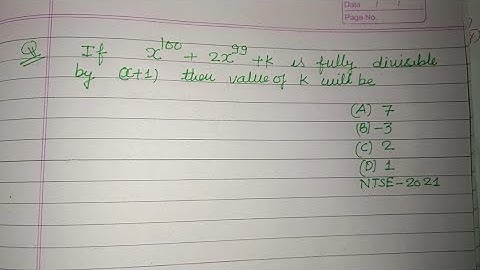 Data / /
Page No.
Q If x¹⁰⁰ + 2x⁹⁹ + k is fully divisible
by (x+1) then value of k will be
(A) 7
(B) -3
(C) 2
(D) 1
NTSE-2021